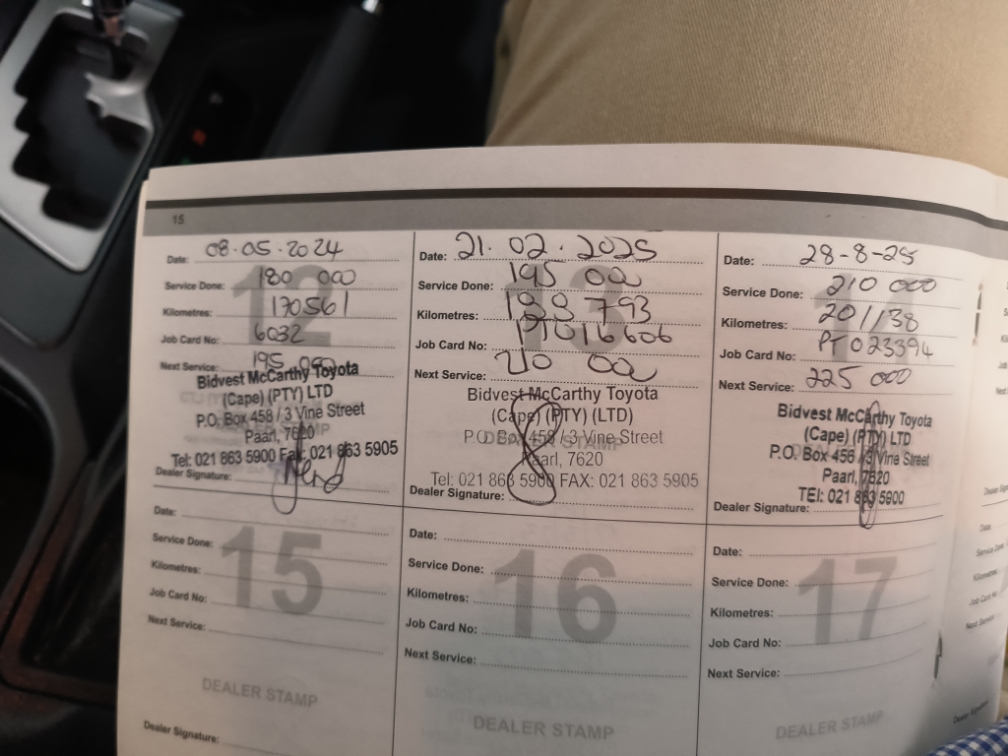 15
12
Date: 08.05.2024
Service Done: 180 000
Kilometres: 170561
Job Card No: 6032
Next Service: 195 000
Bidvest McCarthy Toyota
(Cape) (PTY) LTD
P.O. Box 458 / 3 Vine Street
Paarl, 7620
Tel: 021 863 5900 Fax: 021 863 5905
Dealer Signature:
13
Date: 21.02.2025
Service Done: 195 000
Kilometres:
Job Card No: PT016606
Next Service: 210 000
Bidvest McCarthy Toyota
(Cape) (PTY) (LTD)
P.O. Box 458 / 3 Vine Street
Paarl, 7620
Tel: 021 863 5900 FAX: 021 863 5905
Dealer Signature:
Date: 28-8-25
Service Done: 210 000
Kilometres: 201138
Job Card No: PT023394
Next Service: 225 000
Bidvest McCarthy Toyota
(Cape) (PTY) LTD
P.O. Box 456 / 3 Vine Street
Paarl, 7620
TEl: 021 863 5900
Dealer Signature:
15
Date:
Service Done:
Kilometres:
Job Card No:
Next Service:
DEALER STAMP
Dealer Signature:
16
Date:
Service Done:
Kilometres:
Job Card No:
Next Service:
DEALER STAMP
17
Date:
Service Done:
Kilometres:
Job Card No:
Next Service:
DEALER STAMP